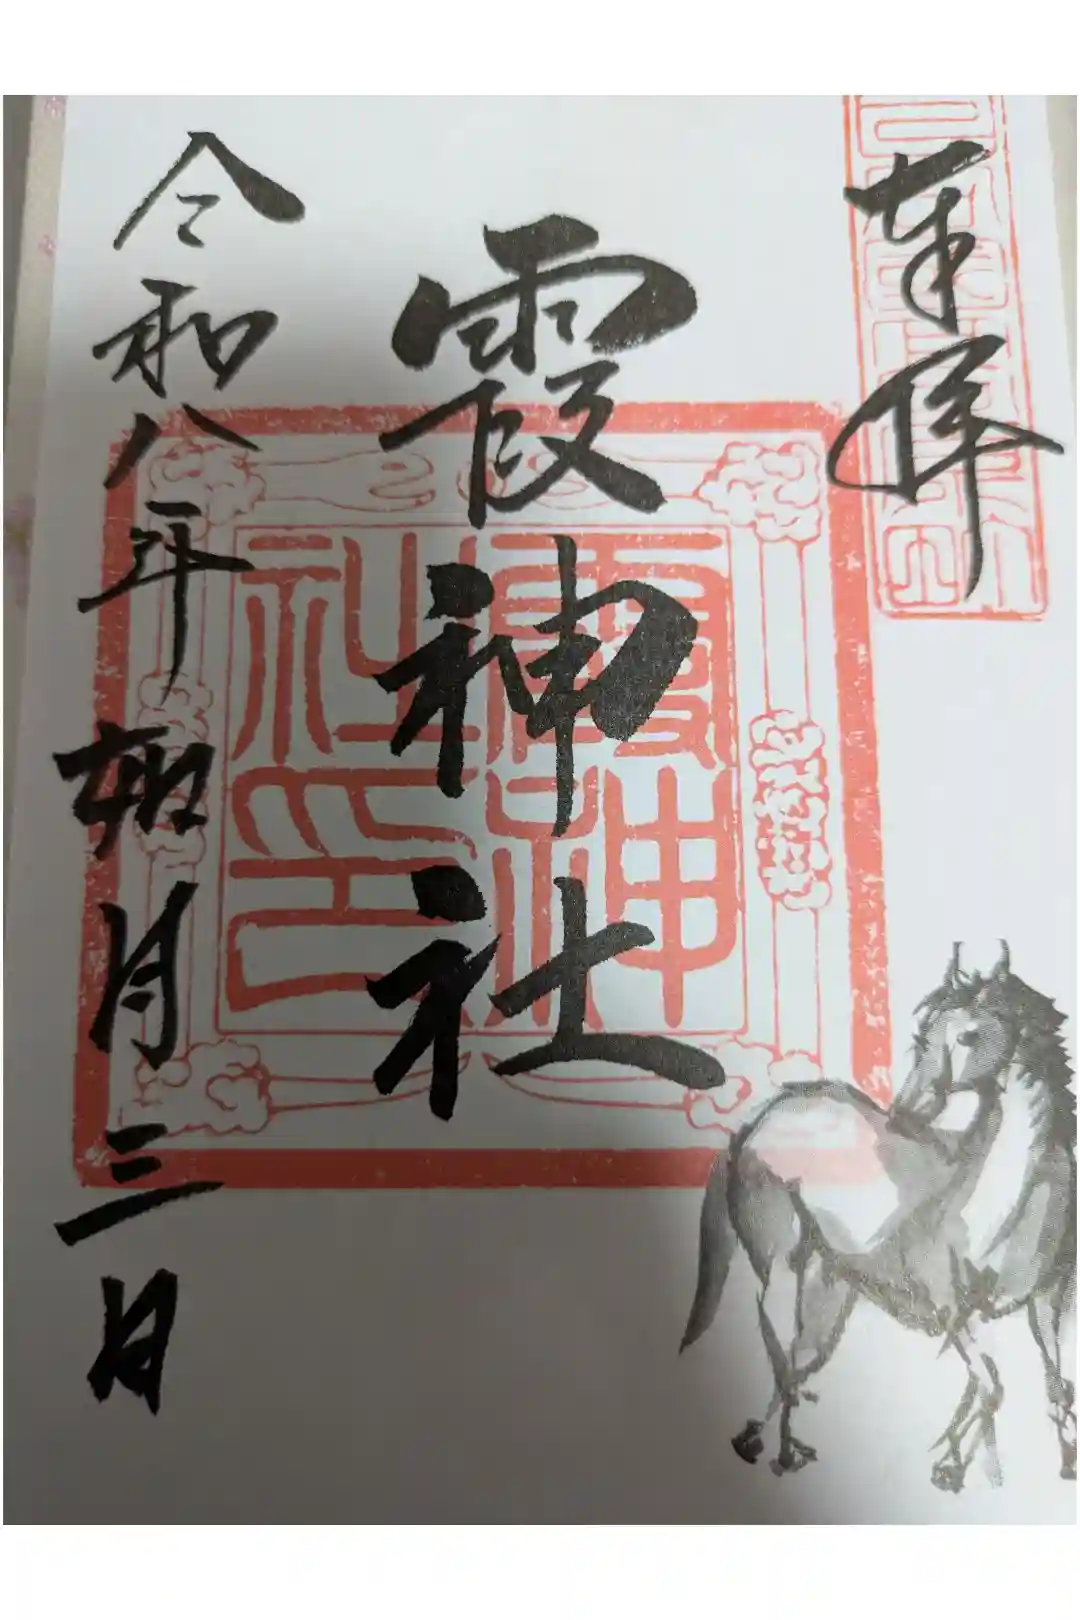 奉拝
霞神社
令和八年如月三日
霞神
社印